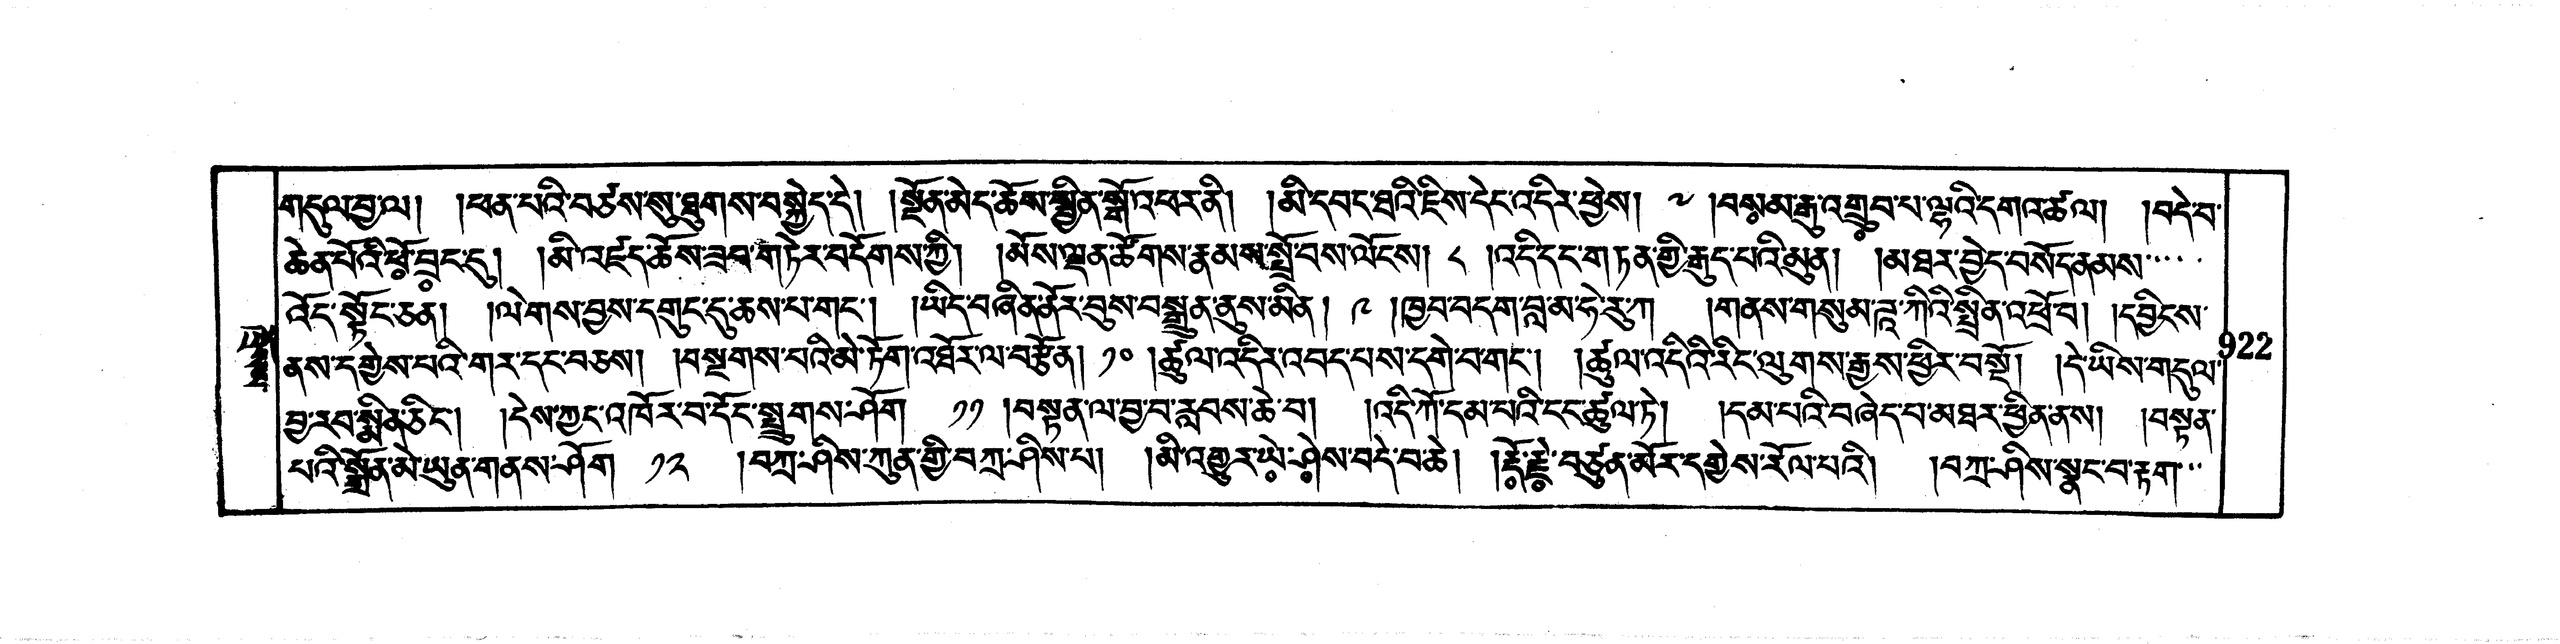 གདུལ་བྱ་ལ། །ཕན་པའི་བཙས་སུ་ཐུགས་བསྐྱེད་དེ། །སྔོན་མེད་ཆོས་སྦྱིན་སྒོ་འཕར་ནི། །མི་དབང་ཐའི་ཇིས་དེང་འདིར་ཕྱེས། ༧ །བསམ་རྒུ་འགྲུབ་པ་ལྷའི་དགའ་ཚལ། །བདེ་བ་
ཆེན་པོའི་ཕོ་བྲང་དུ། །མི་འཛད་ཆོས་ཟབ་གཏེར་བདོགས་ཀྱི། །མོས་ལྡན་ཚོགས་རྣམས་སྤྲོ་བས་ལོངས། ༨ །འདི་དང་གཏན་གྱི་རྒུད་པའི་མུན། །མཐར་བྱེད་བསོད་ནམས་
འོད་སྟོང་ཅན། །ལེགས་བྱས་དགུང་དུ་ཆས་པ་གང་། །ཡིད་བཞིན་ནོར་བུས་བསྒྲུན་ནུས་མིན། ༩ །ཁྱབ་བདག་བླ་མ་ཧེ་རུ་ཀ །གནས་གསུམ་ཌཱ་ཀིའི་སྤྲིན་འཕྲོ་བ། །དབྱིངས་
ནས་དགྱེས་པའི་གར་དང་བཅས། །བསྔགས་པའི་མེ་ཏོག་འཐོར་ལ་བརྩོན། ༡༠ །ཚུལ་འདིར་འབད་པས་དགེ་བ་གང་། །ཚུལ་འདིའི་རིང་ལུགས་རྒྱས་ཕྱིར་བསྔོ། །དེ་ཡིས་གདུལ་
བྱ་རབ་སྨིན་ཅིང་། །དེས་ཀྱང་འཁོར་བ་དོང་སྤྲུགས་ཤོག ༡༡ །བསྟན་ལ་བྱ་བ་རླབས་ཆེ་བ། །འདི་ཀོ་དམ་པའི་ངང་ཚུལ་ཏེ། །དམ་པའི་བཞེད་པ་མཐར་ཕྱིན་ནས། །བསྟན་
པའི་སྒྲོན་མེ་ཡུན་གནས་ཤོག ༡༢ །བཀྲ་ཤིས་ཀུན་གྱི་བཀྲ་ཤིས་པ། །མི་འགྱུར་ཡེ་ཤེས་བདེ་བ་ཆེ། །རྡོ་རྗེ་བཙུན་མོར་དགྱེས་རོལ་པའི། །བཀྲ་ཤིས་སྣང་བ་རྟག་
922